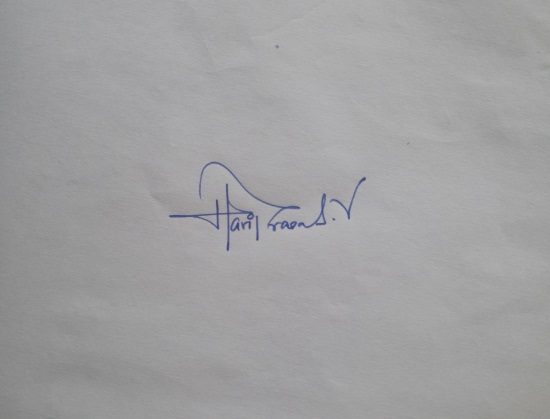 Hariprasan S.V